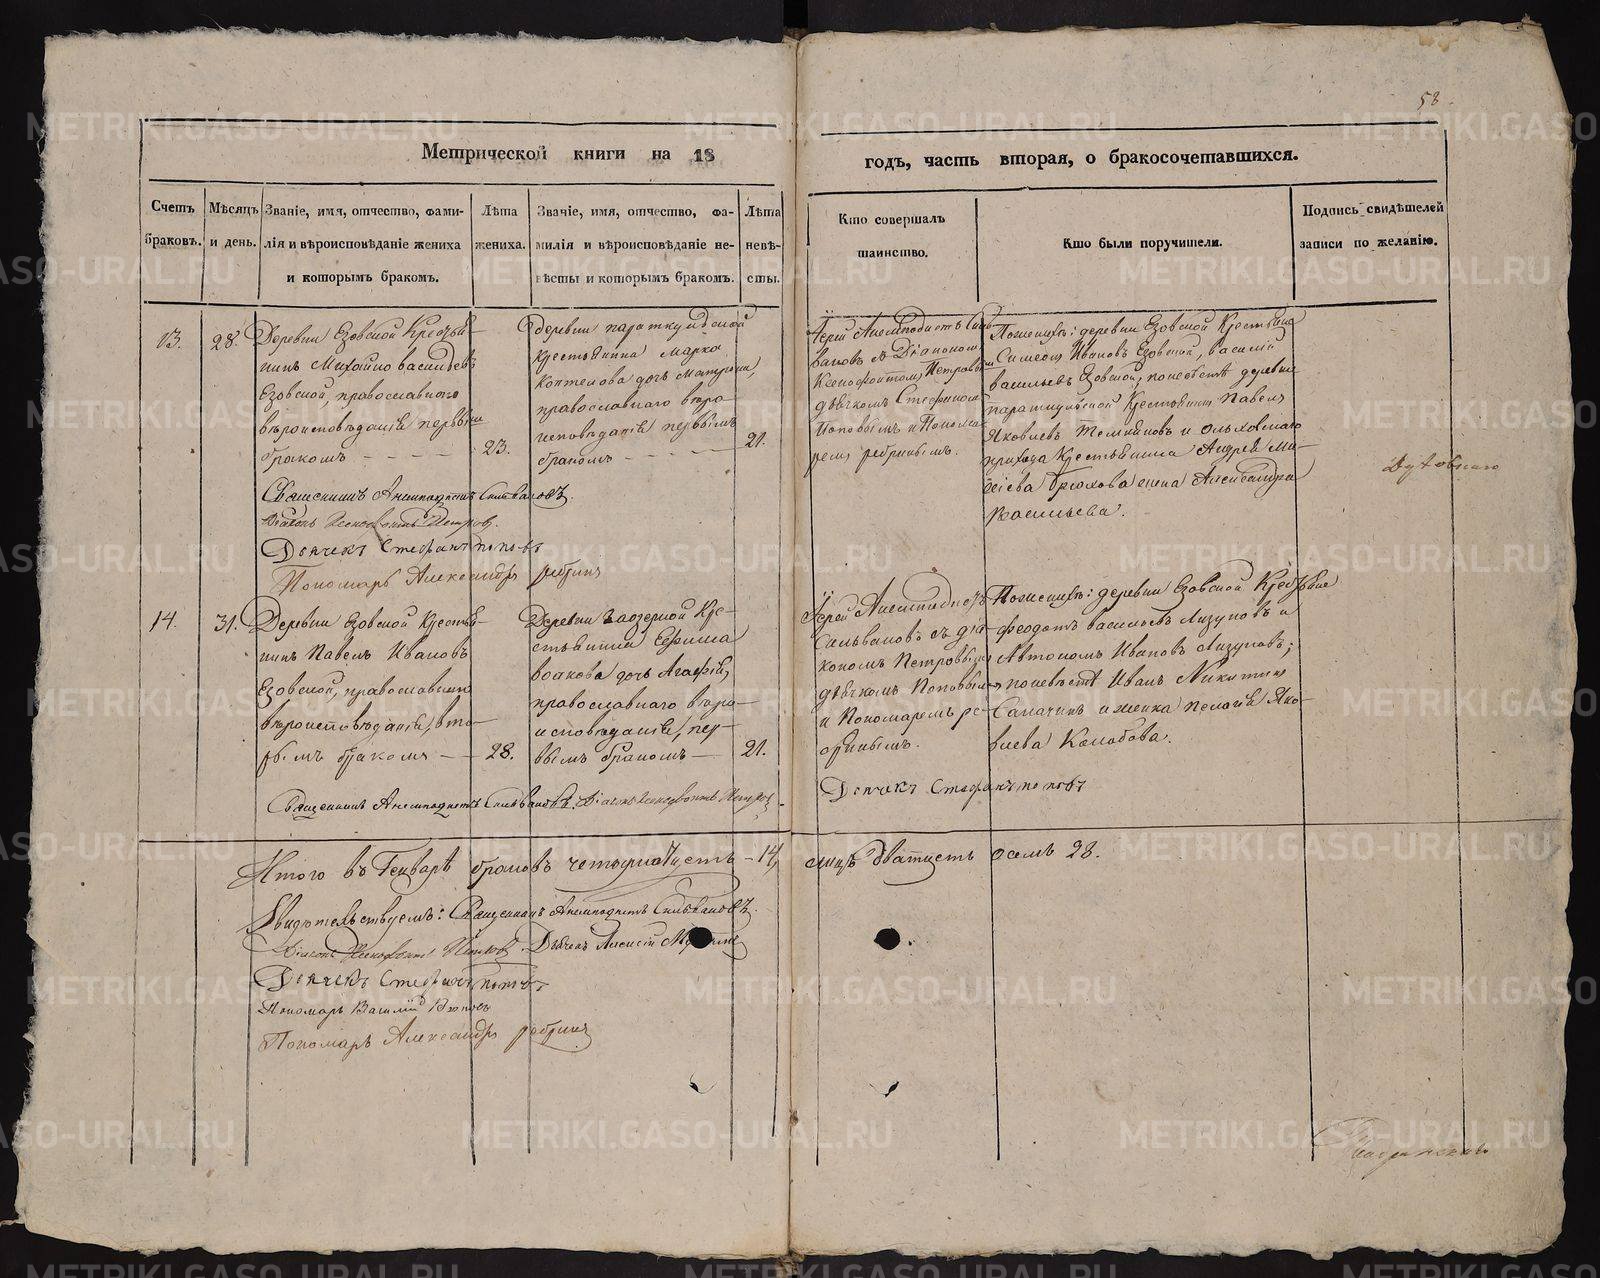 58
Метрической книги на 18
годъ, часть вторая, о бракосочетавшихся.
Счетъ браковъ.
Мѣсяцъ и день.
Званіе, имя, отчество, фами-
лія и вѣроисповѣданіе жениха
и которымъ бракомъ.
Лѣта жениха.
Званіе, имя, отчество, фа-
милія и вѣроисповѣданіе не-
вѣсты и которымъ бракомъ.
Лѣта невѣ-
сты.
Кто совершалъ
таинство.
Кто были поручители.
Подпись свидѣтелей
записи по желанію.
13.
28.
Деревни Езовской Крестья-
нинъ Михайло Васильевъ
Езовской, православнаго
вѣроисповѣданія первымъ
бракомъ
23.
Деревни
Крестьянина Марка
Коптелова дочь Матрона,
православнаго вѣро-
исповѣданія первымъ
бракомъ
21.
Іерей Анемподистъ Силь-
вановъ съ Діакономъ
Ксенофонтомъ Петровымъ
дьячкомъ Стефаномъ
Поповымъ и Понома-
ремъ Ребринымъ.
Поженихѣ: деревни Езовской Крестьяна
Симеонъ Ивановъ Езовской, Василій
Васильевъ Езовской, поневѣстѣ деревни
Крестьянинъ Павелъ
Яковлевъ
прихода Крестьянина Андрея
жена Александра
Васильева.
Священникъ Анемподистъ Сильвановъ.
Діаконъ Ксенофонтъ Петровъ.
Дьячекъ Стефанъ Поповъ
Пономарь Александръ Ребринъ
14.
31.
Деревни Езовской Крестья-
нинъ Павелъ Ивановъ
Езовской, православнаго
вѣроисповѣданія, вто-
рымъ бракомъ
28.
Деревни Заозерной Кре-
стьянина Ефима
Волкова дочь Агафія,
православнаго вѣро-
исповѣданія, пер-
вымъ бракомъ
21.
Іерей Анемподистъ
Сильвановъ съ діа-
кономъ Петровымъ
дьячкомъ Поповымъ
и Пономаремъ Ре-
бринымъ.
Поженихѣ: деревни Езовской Крестьяне
Феодотъ Васильевъ Лизуновъ и
Автономъ Ивановъ Лизуновъ;
поневѣстѣ Иванъ Никитинъ
и женка Пелагія Яко-
влева Колобова.
Священникъ Анемподистъ Сильвановъ. Діаконъ Ксенофонтъ Петровъ
Дьячекъ Стефанъ Поповъ
Итого въ Генварѣ браковъ четырнатцать – 14,
лицъ дватцать осемь 28.
Свидѣтельствуемъ: Священникъ Анемподистъ Сильвановъ.
Діаконъ Ксенофонтъ Петровъ. Дьячекъ Алексій
Дьячекъ Стефанъ Поповъ
Пономарь Василій
Пономарь Александръ Ребринъ
METRIKI.GASO-URAL.RU